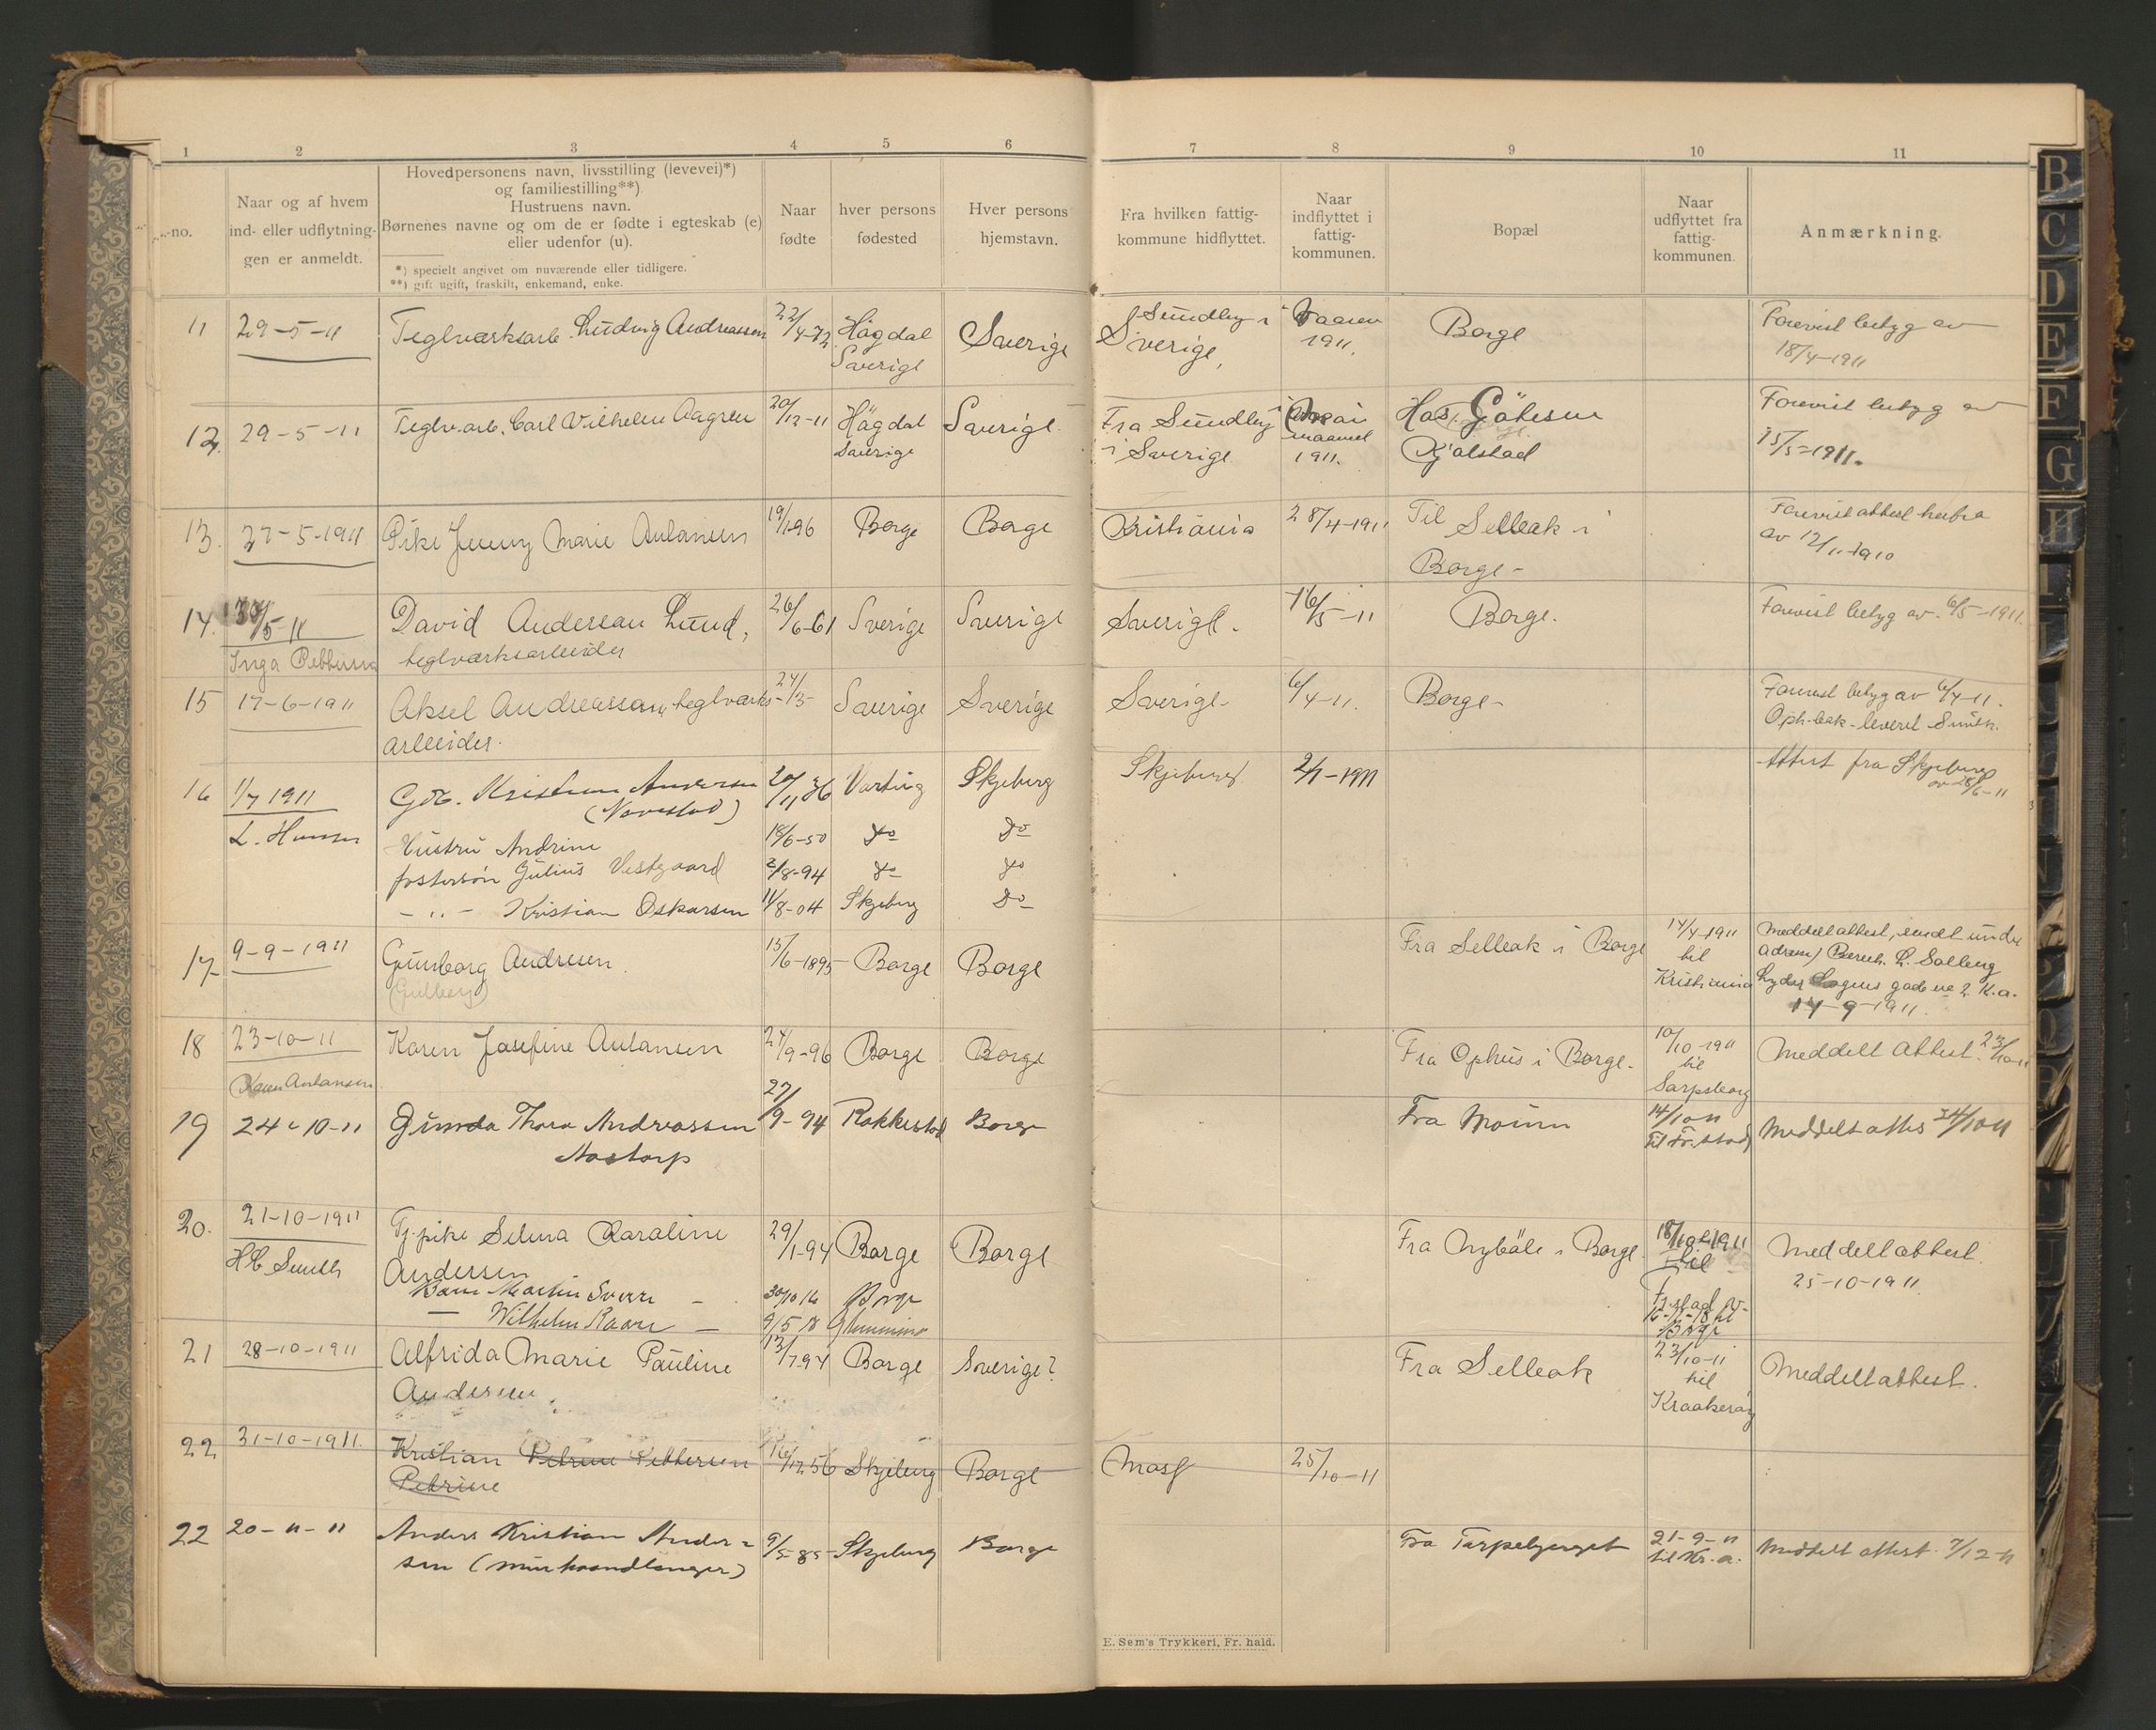 1 2 3 4 5 6 7 8 9 10 11
-no.
Naar og af hvem
ind- eller udflytnin-
gen er anmeldt.
Hovedpersonens navn, livsstilling (levevei)*)
og familiestilling**)
Hustruens navn.
Børnenes navne og om de er fødte i egteskab (e)
eller udenfor (u).
*) specielt angivet om nuværende eller tidligere.
**) gift ugift, fraskilt, enkemand, enke.
Naar
fødte
hver persons
fødested
Hver persons
hjemstavn.
Fra hvilken fattig-
kommune hidflyttet.
Naar
indflyttet i
fattig-
kommunen.
Bopæl
Naar
udflyttet fra
fattig-
kommunen.
Anmærkning.
11 29-5-11 Teglværksarb. Ludvig Andreassen 22/4-72 Högdal Sverige Sundby i
Sverige Sverige, 1911. Borge Forevist betyg av
18/4-1911
12. 29-5-11 Teglv.arb. Carl Vilhelm Aagren 20/12-11 Högdal Sverige Fra Sundby Mai Hos Göhesen Forevist betyg av
Sverige i Sverige maaned Kjølstad 15/5-1911.
1911.
13. 27-5-1911 Pike Jenny Marie Antonsen 19/1-96 Borge Borge Kristiania 28/4-1911 Til Selleak i Forevist attest herfra
Borge- av 12/11-1910
14. 30/5-11 David Andersan Lund, 26/6-61 Sverige Sverige Sverige. 16/5-11 Borge. Forevist betyg av 6/5-1911.
Inga Pettersen teglværksarbeider
15 17-6-1911 Aksel Andreassen, teglværks- 24/13- Sverige Sverige Sverige- 6/4-11. Borge- Forevist betyg av 6/4-11.
arbeider. Oph.bok-leveret Smith.
16 1/7 1911 Gdb. Kristian Andersen 20/11 36 Varteig Skjeberg Skjeberg 2/7-1911 Attest fra Skjeberg
(Navestad) av 28/6-11
L. Hansen Hustru Andrine 18/6-50 Do Do
fostersön Julius Vestgaard 2/8-94 Do Do
- " - Kristian Oskarsen 11/8-04 Skjeberg Do
17 9-9-1911 Gunborg Andresen 15/6-1895 Borge Borge Fra Selleak i Borge 14/4-1911 Meddelt attest, sendt under
(Gulberg) til adresse L. Solberg
Kristiania Lyder Sagens gade no 2 K.a.
14-9-1911.
18 23-10-11 Karen Josefine Antonsen 24/9-96 Borge Borge Fra Ophus i Borge. 10/10-1911 Meddelt Attest. 23/10-11
Karen Antonsen til
Sarpsborg
19 24-10-11 Gunda Thora Andreassen 27/9-94 Rakkestad Borge Fra Moum 14/10 11 Meddelt attes 24/10 11
Aastorp til Fr.stad
20. 21-10-1911 Tj.pike Selma Karoline 29/1-94 Borge Borge Fra Nyböle i Borge 18/10-1911 Meddelt attest.
H.C. Smith Andersen til 25-10-1911.
Barn Martin Sverre - 30/10 16 Borge Fr.stad
- Wilhelm Kaare - 9/5 18 Glemminge 16-11-18 til
Borge
21 28-10-1911 Alfrida Marie Pauline 13/7-94 Borge Sverige? Fra Selleak 23/10-11 Meddelt attest.
Andersen til
Kraakerøy
22 31-10-1911. Kristian Petrine Pettersen 16/12 56 Skjeberg Borge Moss 25/10-11
Petrine
22 20-11-11 Anders Kristian Ander- 9/5-85- Skjeberg Borge Fra Torpebjerget 21-9-11 Meddelt attest 7/12-11
sen (murhaandlanger) til Kr.a.
E. Sem's Trykkeri, Fr. hald.
B
C
D
E
F
G
H
I